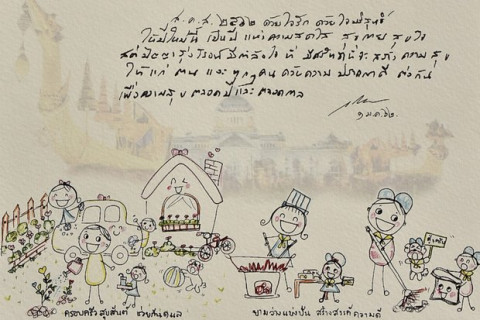 ส.ค.ส. ๒๕๖๒ ด้วยใจรัก ด้วยใจบริสุทธิ์
ให้ปีใหม่นี้ เป็นปี แห่งความสดใส สบายใจ สุขใจ
สติปัญญารุ่งโรจน์ มีกำลังใจ ที่ สร้าง ความสุข
ให้แก่ ตน และทุกคน ด้วยความ ปรารถนาดี ต่อกัน
เพื่อความสุข ตลอดปีและ ตลอดกาล
๑ ม.ค. ๖๒
ครอบครัวสุขสันต์
ยามว่างแบ่งปัน สร้างสรรค์ ความดี